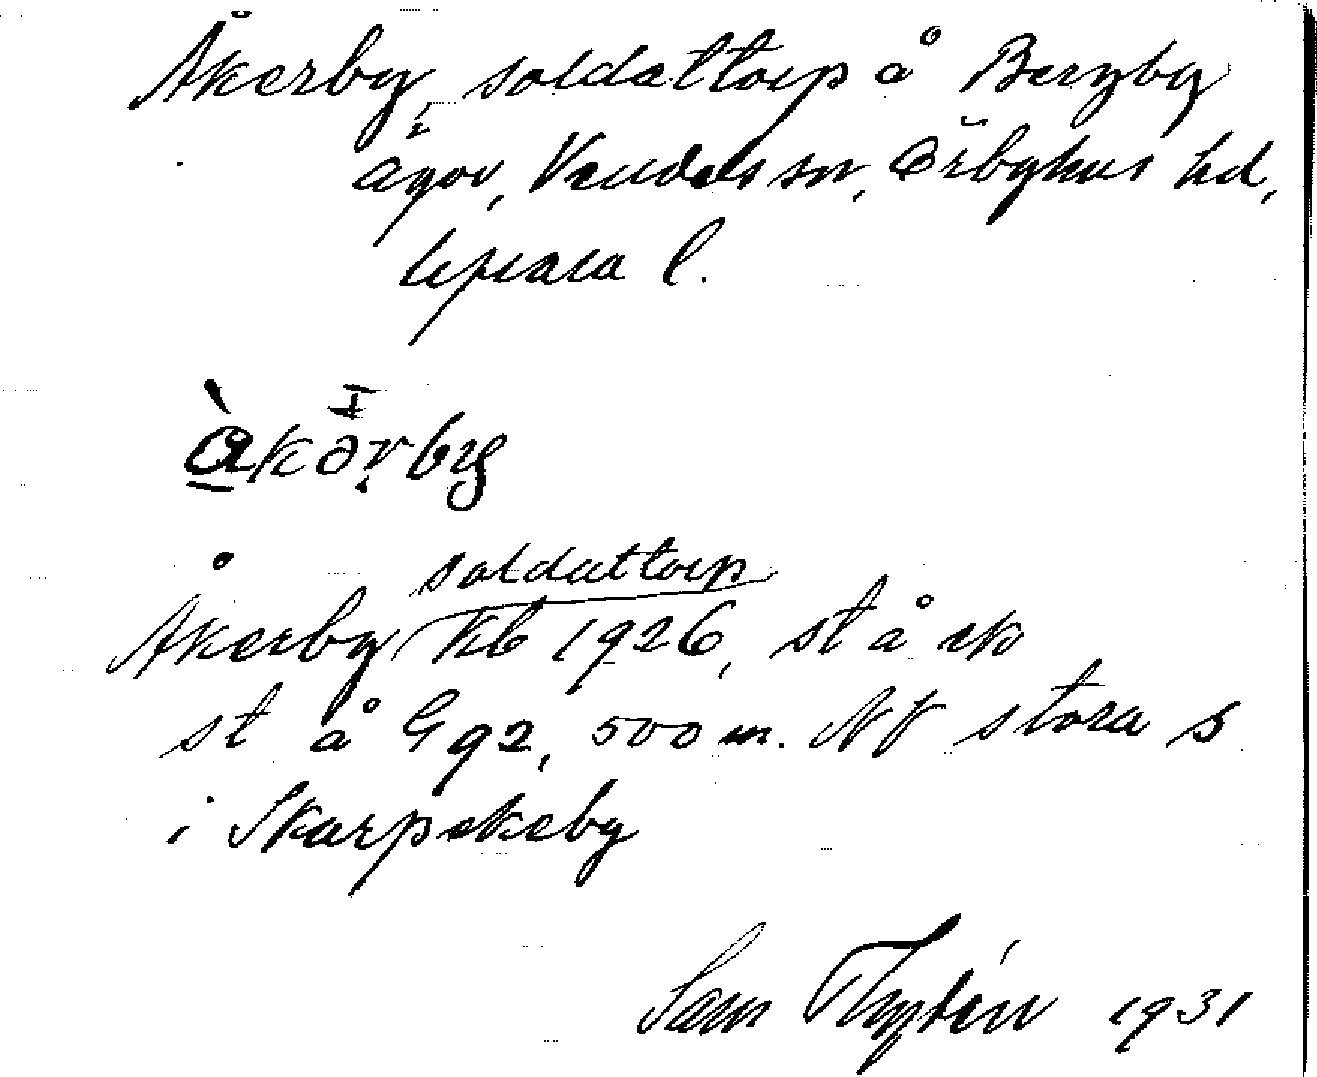 Åkerby, soldattorp å Bergby
ägor, Vendels sn, Örbyhus hd,
Uppsala l.
àkərby
soldattorp
Åkerby Kb 1926, st å rk
st å G 92, 500 m. NV stora s
i Skarpekeby
Sam Thydén 1931